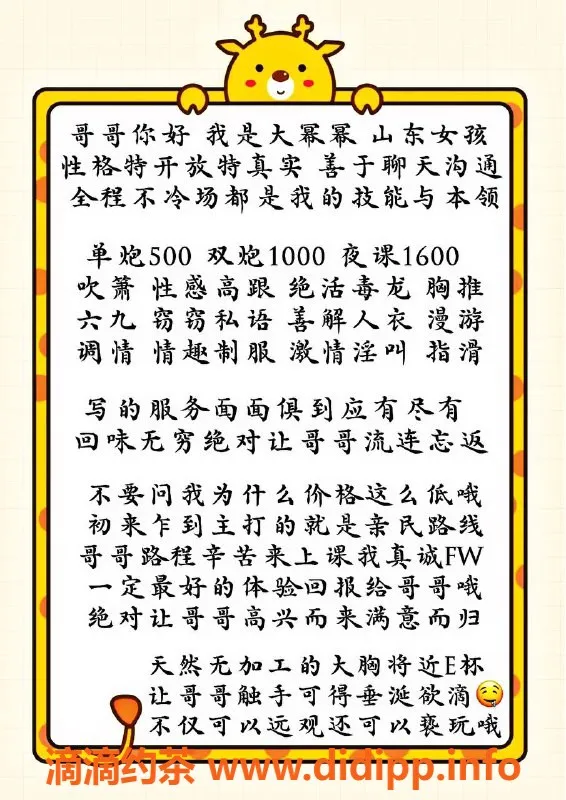 哥哥你好 我是大幂幂 山东女孩
性格特开放特真实 善于聊天沟通
全程不冷场都是我的技能与本领
单炮500 双炮1000 夜课1600
吹箫 性感高跟 绝活毒龙 胸推
六九 窃窃私语 善解人衣 漫游
调情 情趣制服 激情淫叫 指滑
写的服务面面俱到应有尽有
回味无穷绝对让哥哥流连忘返
不要问我为什么价格这么低哦
初来乍到主打的就是亲民路线
哥哥路程辛苦来上课我真诚FW
一定最好的体验回报给哥哥哦
绝对让哥哥高兴而来满意而归
天然无加工的大胸将近E杯
让哥哥触手可得垂涎欲滴🤤
不仅可以远观还可以亵玩哦
滴滴约茶 www.didipp.info